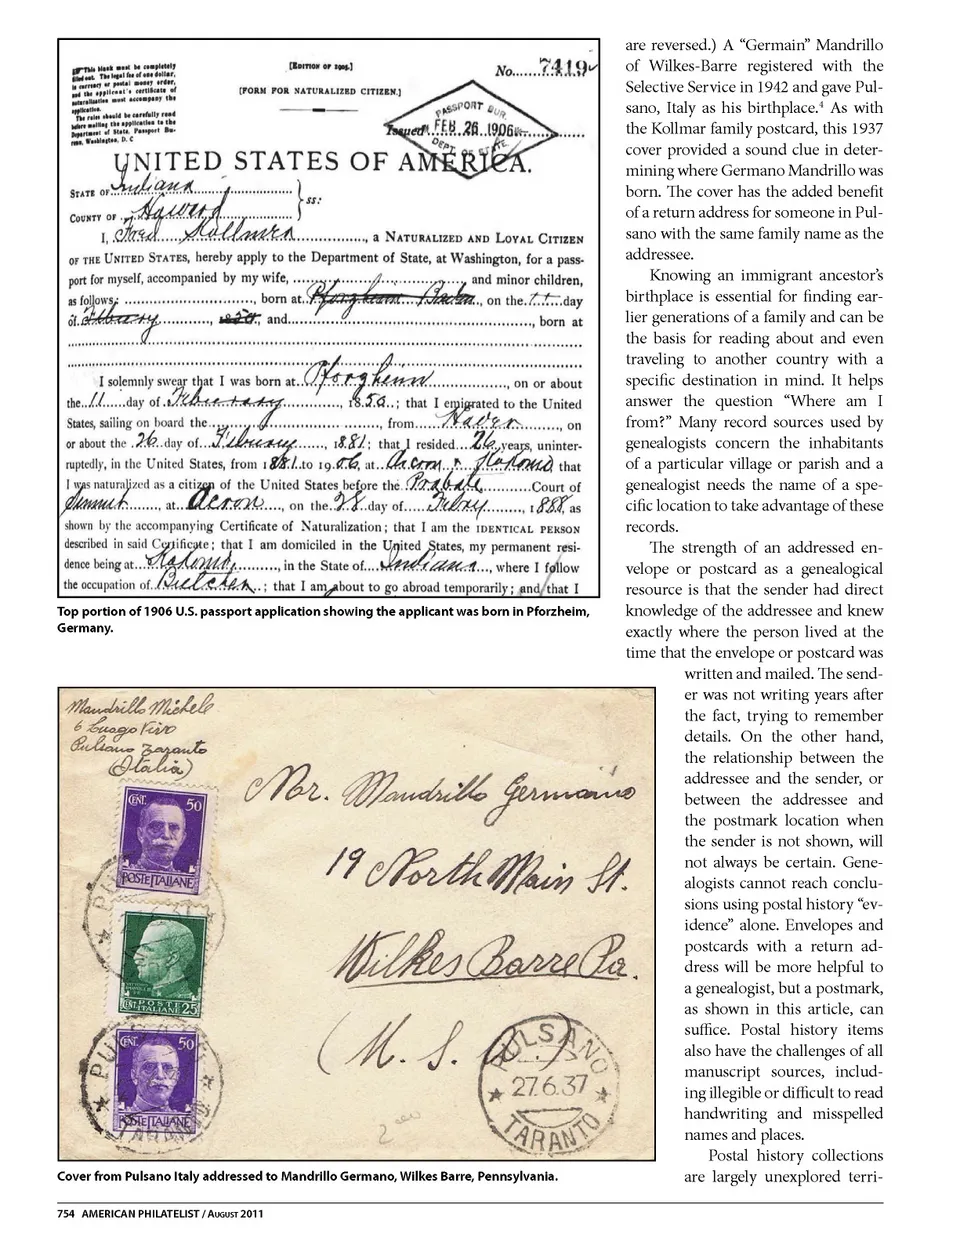 ☞ This blank must be completely
filled out. The legal fee of one dollar,
in currency or postal money order,
and the applicant's certificate of
naturalization must accompany the
application.
The rules should be carefully read
before mailing the application to the
Department of State, Passport Bu-
reau, Washington, D. C
[EDITION OF 1905.]
[FORM FOR NATURALIZED CITIZEN.]
No. 7419
PASSPORT BUR.
Issued FEB 26 1906
DEPT. OF STATE.
UNITED STATES OF AMERICA.
STATE OF Indiana
COUNTY OF Howard
ss:
I, Fred Kollmer, a NATURALIZED AND LOYAL CITIZEN
OF THE UNITED STATES, hereby apply to the Department of State, at Washington, for a pass-
port for myself, accompanied by my wife, and minor children,
as follows: born at Pforgheim Baden, on the 11 day
of Febuary, 1850, and born at
I solemnly swear that I was born at Pforgheim, on or about
the 11 day of Februrary, 1850; that I emigrated to the United
States, sailing on board the from Haver, on
or about the 26 day of Februay, 1881; that I resided 26 years, uninter-
ruptedly, in the United States, from 1881 to 1906, at Acron & Kokomo, that
I was naturalized as a citizen of the United States before the Probate Court of
Summit, at Acron, on the 28 day of Febry, 1888, as
shown by the accompanying Certificate of Naturalization; that I am the IDENTICAL PERSON
described in said Certificate; that I am domiciled in the United States, my permanent resi-
dence being at Kokomo, in the State of Indiana, where I follow
the occupation of Butcher; that I am about to go abroad temporarily; and that I
Top portion of 1906 U.S. passport application showing the applicant was born in Pforzheim,
Germany.
Mandrillo Michele
6 Luogo Vivo
Pulsano Taranto
(Italia)
CENT. 50
POSTE ITALIANE
POSTE
ITALIANE
CENT. 25
CENT. 50
POSTE ITALIANE
Mr. Mandrillo Germano
19 North Main St.
Wilkes Barre Pa.
(U. S. A.)
PULSANO
27.6.37
TARANTO
Cover from Pulsano Italy addressed to Mandrillo Germano, Wilkes Barre, Pennsylvania.
are reversed.) A “Germain” Mandrillo
of Wilkes-Barre registered with the
Selective Service in 1942 and gave Pul-
sano, Italy as his birthplace.⁴ As with
the Kollmar family postcard, this 1937
cover provided a sound clue in deter-
mining where Germano Mandrillo was
born. The cover has the added benefit
of a return address for someone in Pul-
sano with the same family name as the
addressee.
Knowing an immigrant ancestor’s
birthplace is essential for finding ear-
lier generations of a family and can be
the basis for reading about and even
traveling to another country with a
specific destination in mind. It helps
answer the question “Where am I
from?” Many record sources used by
genealogists concern the inhabitants
of a particular village or parish and a
genealogist needs the name of a spe-
cific location to take advantage of these
records.
The strength of an addressed en-
velope or postcard as a genealogical
resource is that the sender had direct
knowledge of the addressee and knew
exactly where the person lived at the
time that the envelope or postcard was
written and mailed. The send-
er was not writing years after
the fact, trying to remember
details. On the other hand,
the relationship between the
addressee and the sender, or
between the addressee and
the postmark location when
the sender is not shown, will
not always be certain. Gene-
alogists cannot reach conclu-
sions using postal history “ev-
idence” alone. Envelopes and
postcards with a return ad-
dress will be more helpful to
a genealogist, but a postmark,
as shown in this article, can
suffice. Postal history items
also have the challenges of all
manuscript sources, includ-
ing illegible or difficult to read
handwriting and misspelled
names and places.
Postal history collections
are largely unexplored terri-
754 AMERICAN PHILATELIST / AUGUST 2011